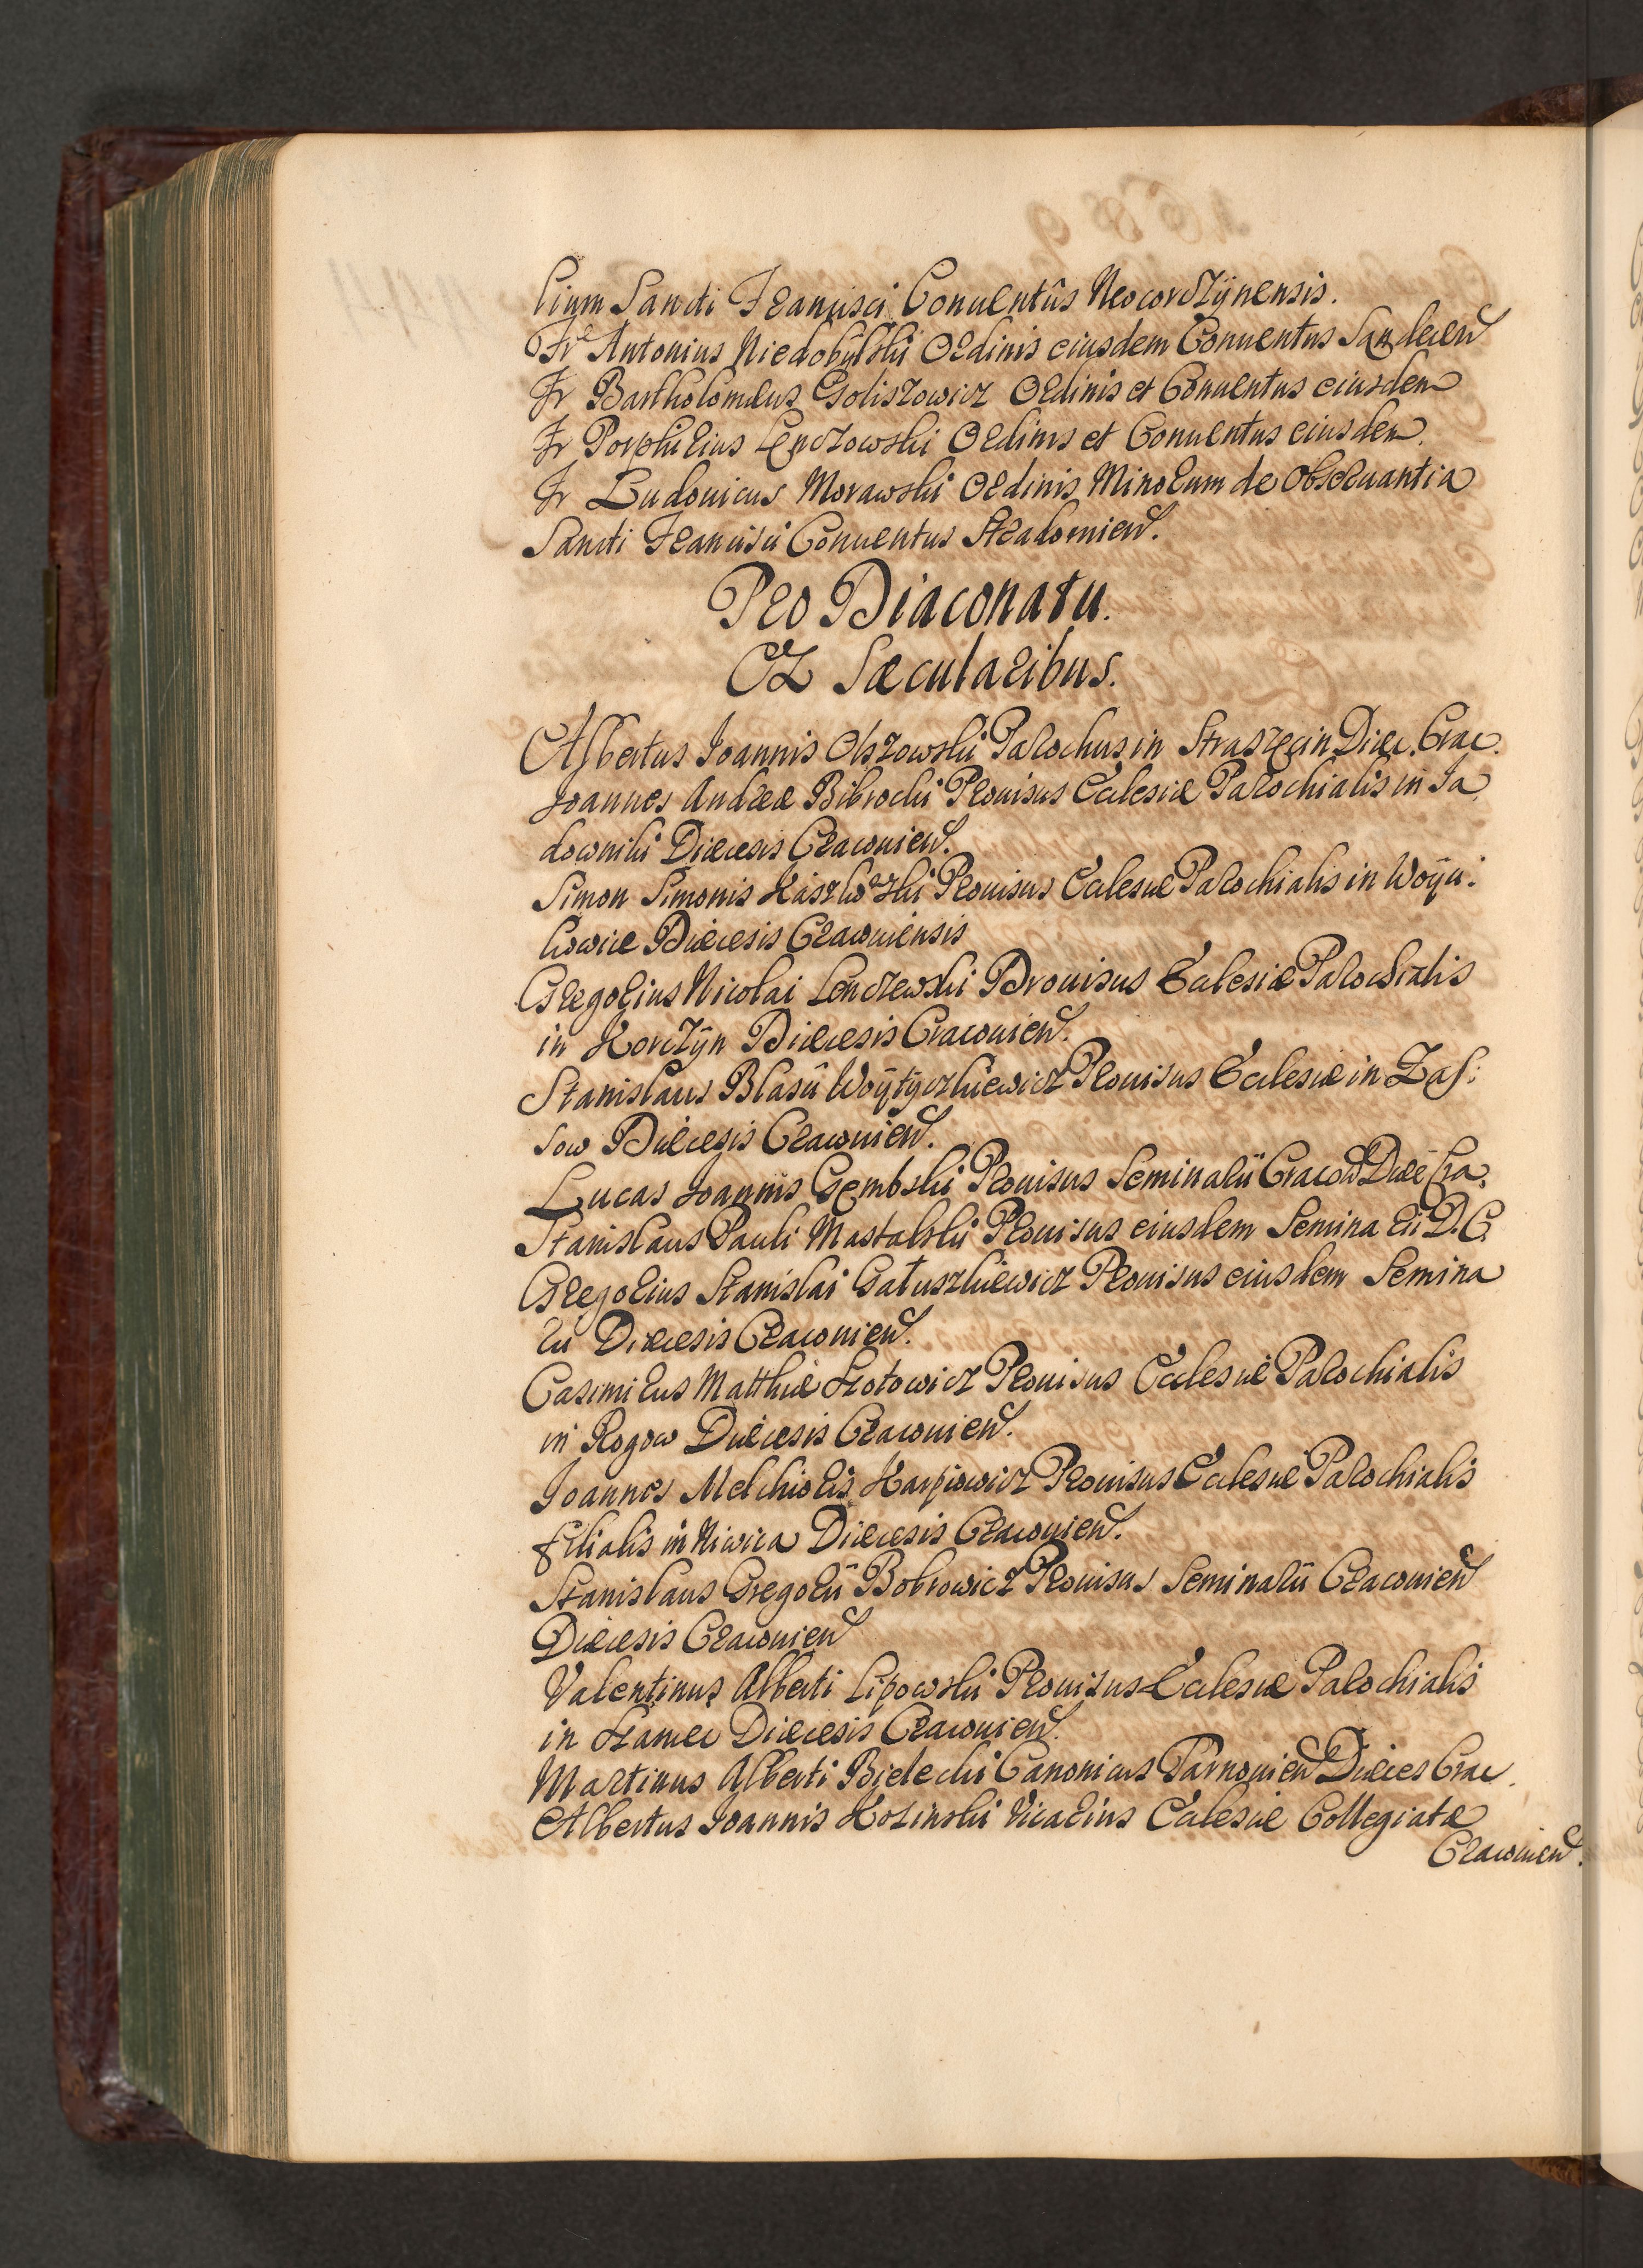 lium Sancti Francisci Conuentûs Neocorczÿnensis.
Fr Antonius Niedobÿlski Ordinis eiusdem Conuentus Sandecen
Fr Bartholomæus Goliszowicz Ordinis et Conuentus eiusdem
Fr Porphirius Lęczowski Ordinis et Conuentus eiusdem.
Fr Ludouicus Morawski Ordinis Minorum de Obseruantia
Sancti Francisci Conuentus Stradomien.
Pro Diaconatu.
Ex Sæcularibus.
Albertus Joannis Olszowski Parochus in Straszęcin Diæc. Crac.
Joannes Andreæ Bibrochi Prouisus Ecclesiæ Parochialis in Ja
downiki Diæcesis Cracouien.
Simon Simonis Kaszkowski Prouisus Ecclesiæ Parochialis in Woÿci:
kowice Diæcesis Cracouiensis
Gregorius Nicolai Lenczewski Prouisus Ecclesiæ Parochialis
in Korczÿn Diæcesis Cracouien.
Stanislaus Blasii Woÿtÿczkiewicz Prouisus Ecclesiæ in Zas:
sow Diæcesis Cracouien.
Lucas Joannis Gembski Prouisus Seminarii Cracou Diæc Cra.
Stanislaus Pauli Mastalski Prouisus eiusdem Semina rii D. C.
Gregorius Stanislai Gałuszkiewicz Prouisus eiusdem Semina
rii Diæcesis Cracouien.
Casimirus Matthiæ Złotowicz Prouisus Ecclesiæ Parochialis
in Rogow Diæcesis Cracouien.
Joannes Melchioris Karpiowicz Prouisus Ecclesiæ Parochialis
filialis in Niwica Diæcesis Cracouien.
Stanislaus Gregorii Bobrowicz Prouisus Seminarii Cracouien
Diæcesis Cracouien
Valentinus Alberti Lipowski Prouisus Ecclesiæ Parochialis
in Diæcesis Cracouien.
Martinus Alberti Bielecki Canonicus Tarnouien Diæces Crac.
Albertus Joannis Kozinski Vicarius Ecclesiæ Collegiatæ
Cracouien.